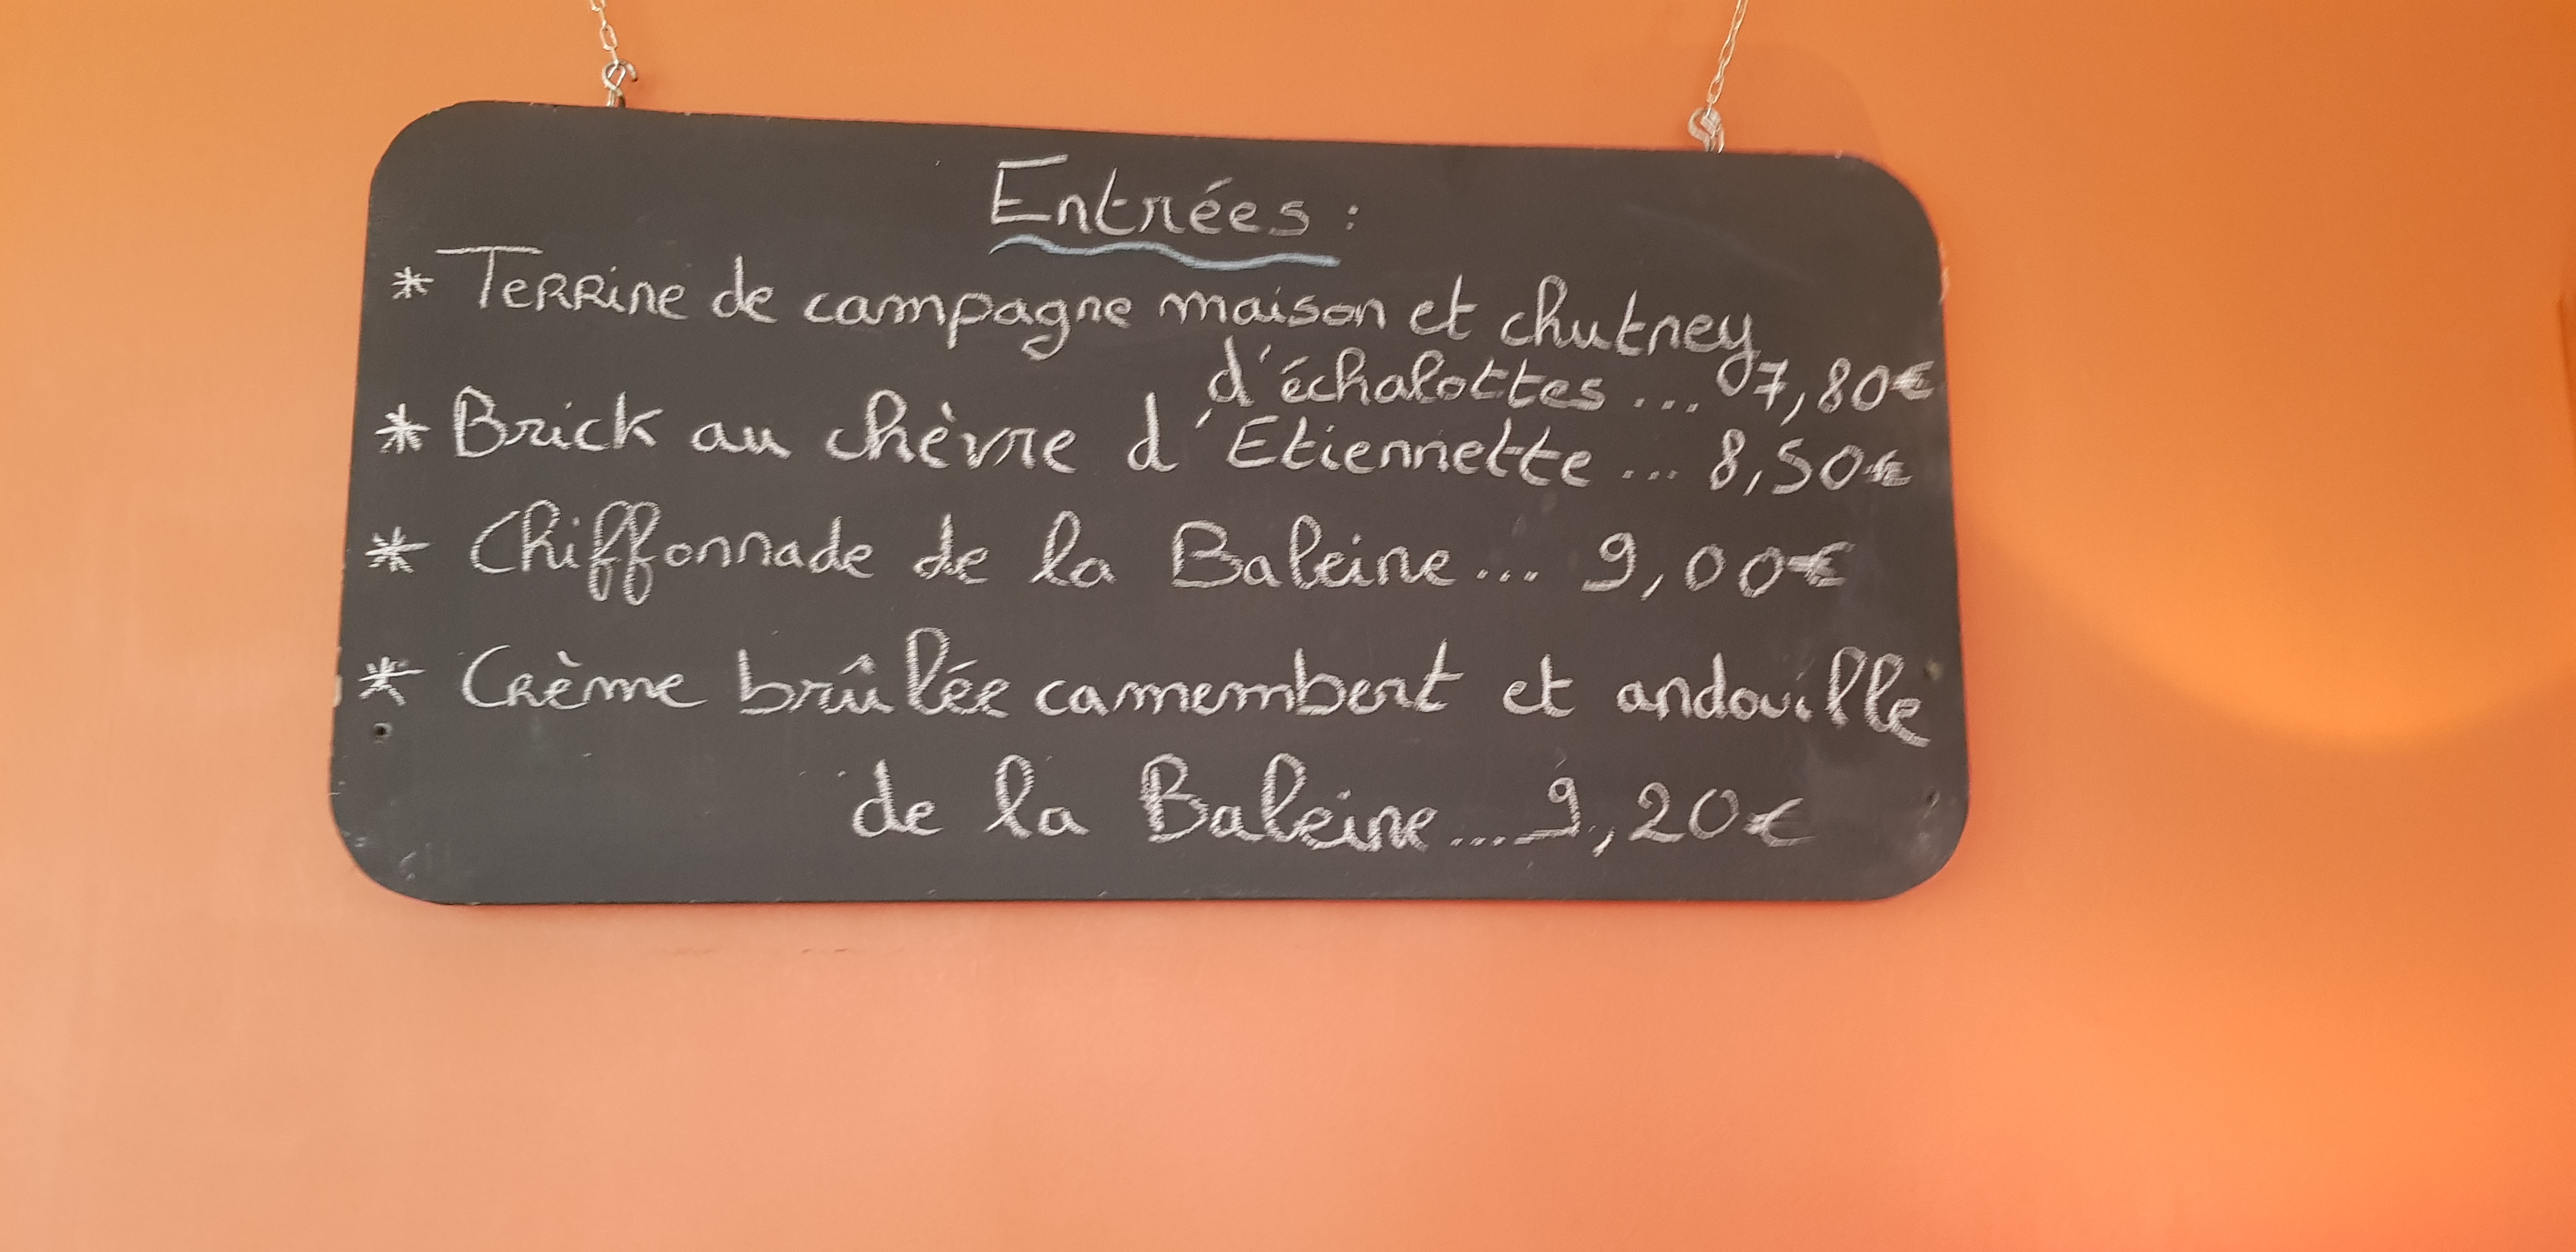 Entrées :
* Terrine de campagne maison et chutney
d'échalottes ... 7,80€
* Brick au chèvre d'Etiennette ... 8,50€
* Chiffonnade de la Baleine ... 9,00€
* Crème brûlée camembert et andouille
de la Baleine .... 9,20€